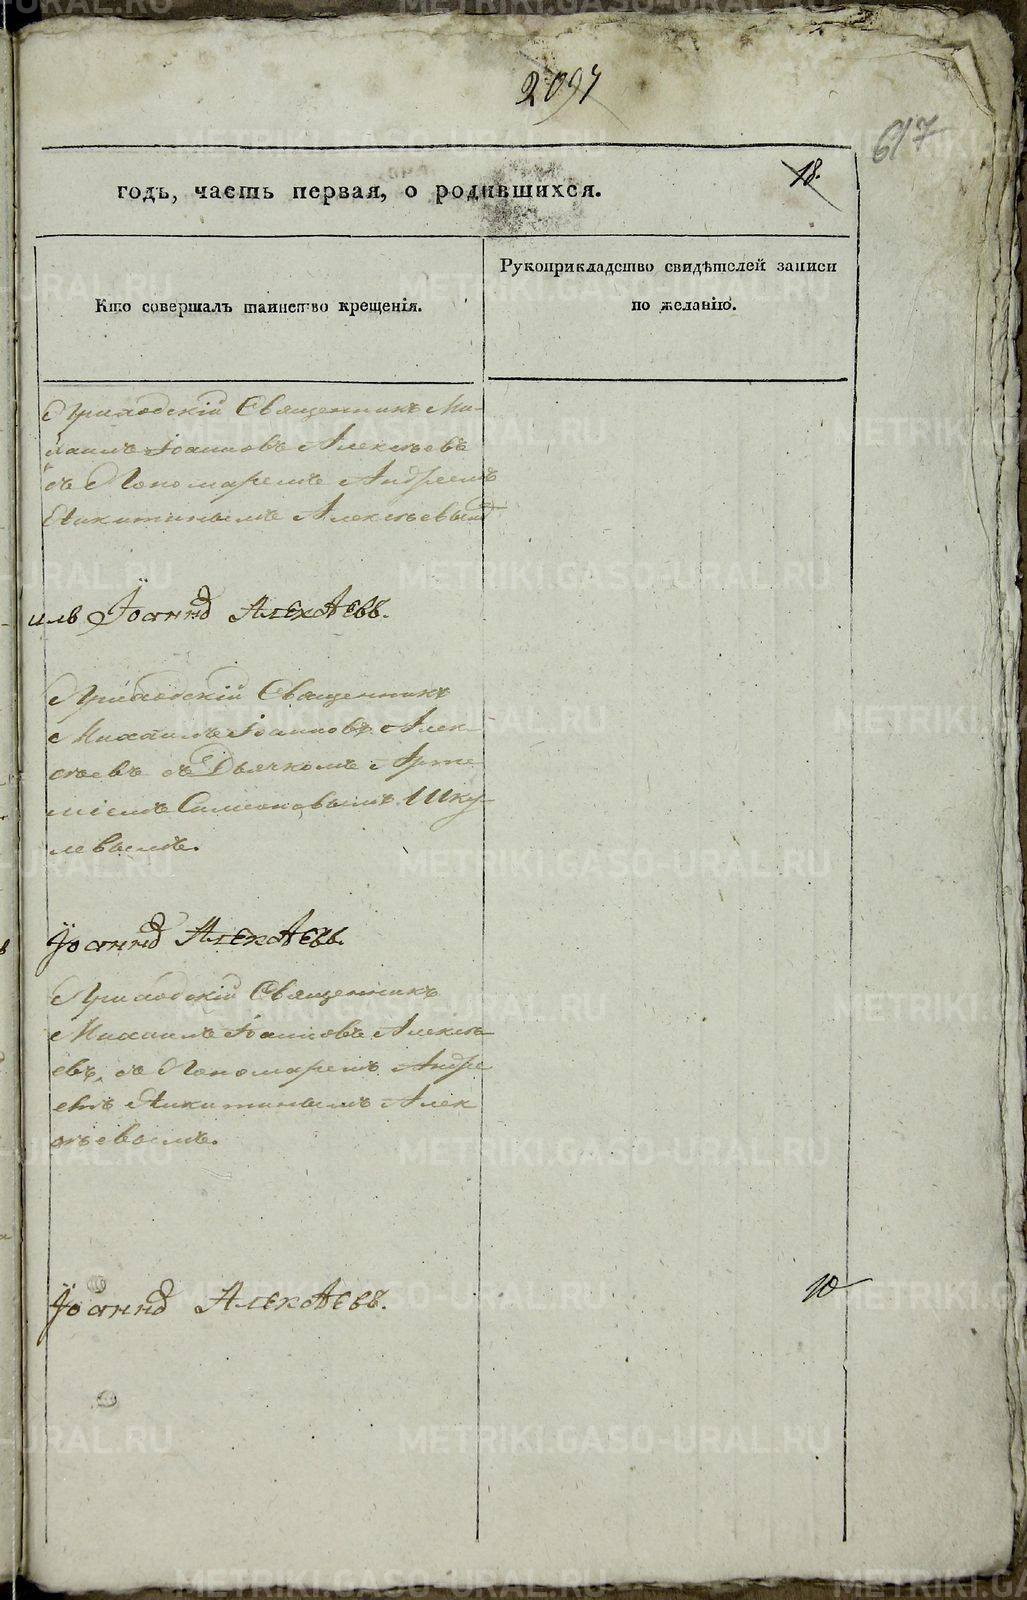 2097
617
18.
годъ, часть первая, о родившихся.
Кто совершалъ таинство крещенія.
Рукоприкладство свидѣтелей записи
по желанію.
Приходскій Священникъ Ми-
хаилъ Іоанновъ Алексѣевъ
съ Пономаремъ Андреемъ
Никитинымъ Алексѣевымъ
илъ Іоаннъ Алексѣевъ.
Приходскій Священникъ
Михаилъ Іоанновъ Алек-
сѣевъ съ Дьячкомъ Арте
міемъ Симеоновымъ Шку-
левымъ.
Іоаннъ Алексѣевъ.
Приходскій Священникъ
Михаилъ Іоанновъ Алексѣ-
евъ, съ Пономаремъ Андре
емъ Никитинымъ Алек
сѣевымъ.
Іоаннъ Алексѣевъ.
10
METRIKI.GASO-URAL.RU